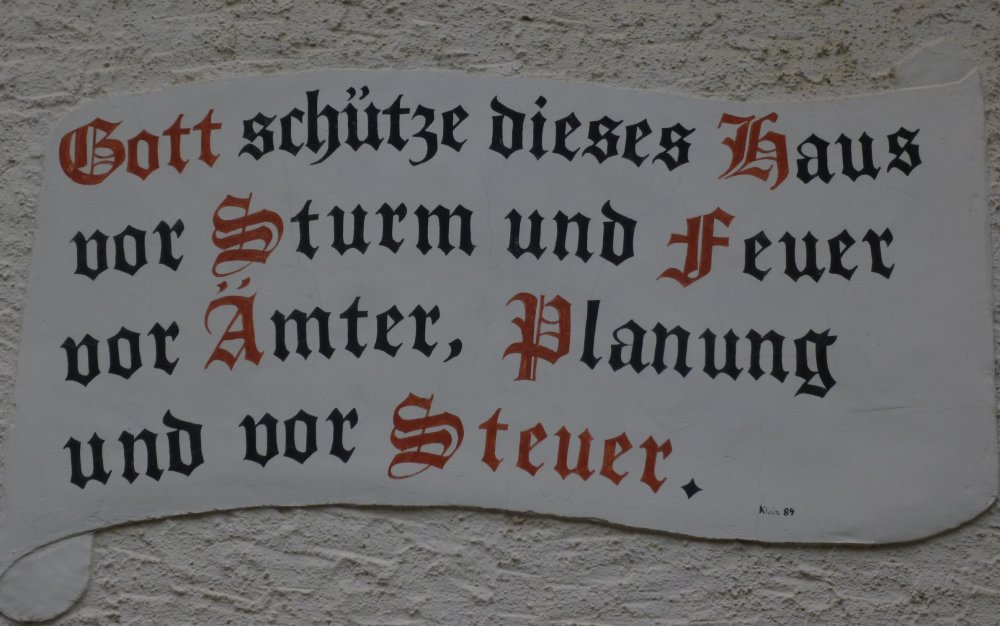 Gott schütze dieses Haus
vor Sturm und Feuer
vor Ämter, Planung
und vor Steuer.
Klein 84